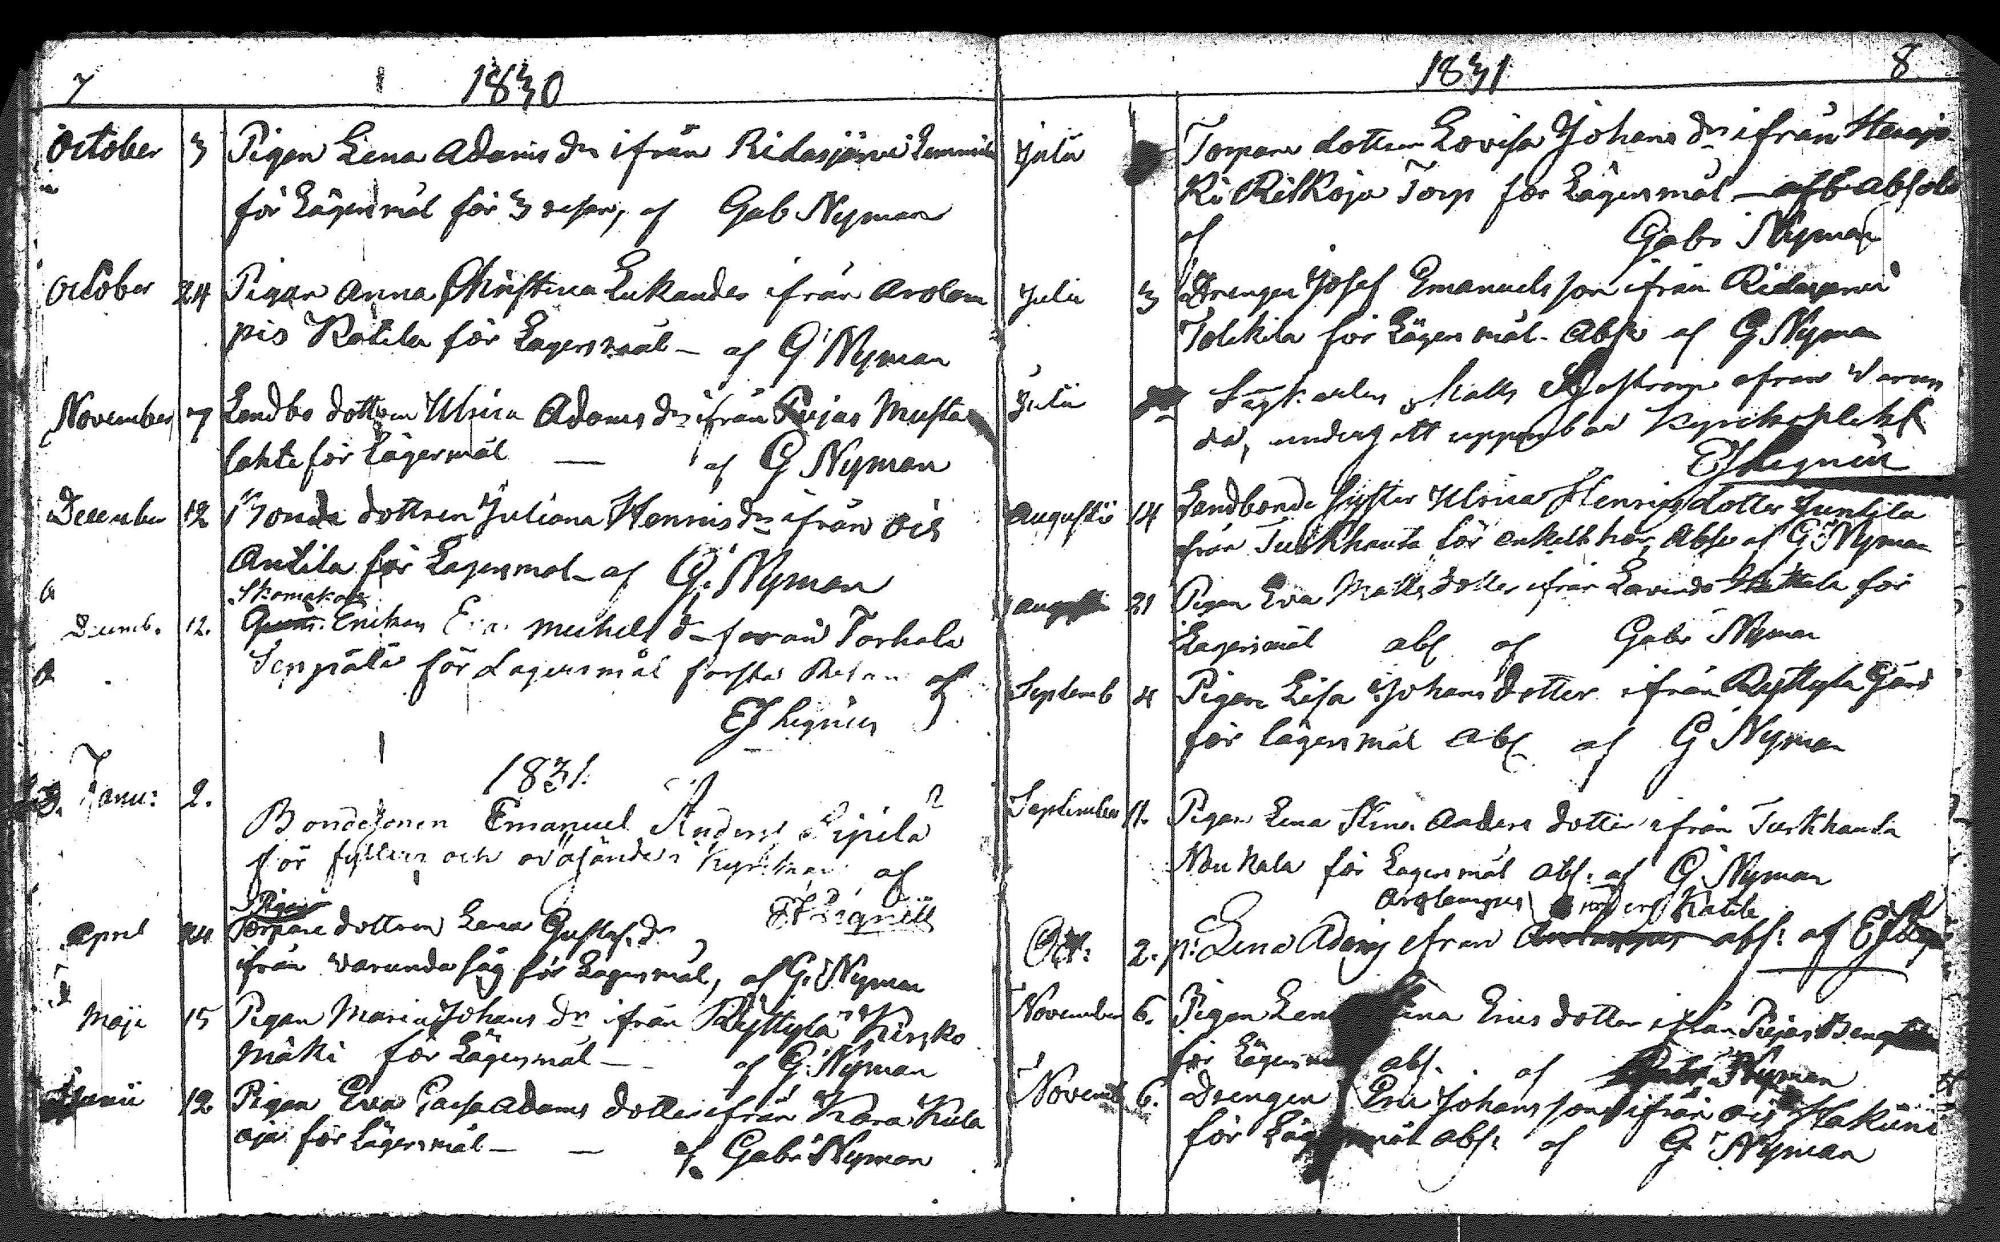 7 1830
October 3 Pigan Lena Adams dr ifrån Ridasjärvi
för Lägersmål för 3 resan, af Gab Nyman
October 24 Pigan Anna Christina ifrån Arolam
pis Katila för Lägersmål – af G Nyman
November 7 Landbo dottren Ulrica Adams dr ifrån Pujas Musta
lahti för Lägersmål — af G Nyman
December 12 Bonde dottren Juliana Henriks dr ifrån Ois
Antila för Lägersmål – af G. Nyman
Skomakare
Decemb. 12. Enkan Eva Michels dr från Torhola
Seppälä för Lägersmål första Resan af
EJ Lignell
1831.
Janu: 2. Bondesonen Emanuel Anders Sipilä
för fylleri och oväsände i Kyrkan af
EJ Lignell
Pigan
April 24 Torpare dottren Lena Gustafs dr
ifrån Varunda såg för Lägersmål, af G. Nyman
Maji 15 Pigan Maria Johans dr ifrån Ryttylä Kirsko
mäki för Lägersmål – af G. Nyman
Junii 12 Pigan Eva Caisa Adams dotter ifrån Kara
oja för Lägersmål – — af Gabr Nyman
1831 8
Julii Torpare dottren Lovisa Johans dr ifrån
Torp för Lägersmål –
af Gabr Nyman
Julii 3 Drengen Josef Emanuels son ifrån Ridasjärvi
Tolkila för Lägersmål. Abs. af G. Nyman
Julii Matts ifrån Varun
da, undergått uppenbar Kyrkoplikt
EJ Lignell
Augusti 14 Landbonde Syster Ulrica Henrics dotter Juntila
från Turkhauta för enkelt hor, Abs. af G. Nyman
Augusti 21 Pigan Eva Matts dotter ifrån för
Lägersmål abs. af Gabr Nyman
Septemb 4 Pigan Lisa Johans dotter ifrån Ryttylä Gård
för Lägersmål abs. af G Nyman
September 11. Pigan Lena Anders dotter ifrån Turkhauta
för Lägersmål abs. af G Nyman
Arolampis Katila
Oct: 2. p: Lena Adams ifrån abs: af EJ
November 6. Pigan Erics dotter ifrån Pujas
för abs. af Nyman
Novemb 6. Drengen Eric Johans son ifrån Ois Hakuni
för abs. af G. Nyman